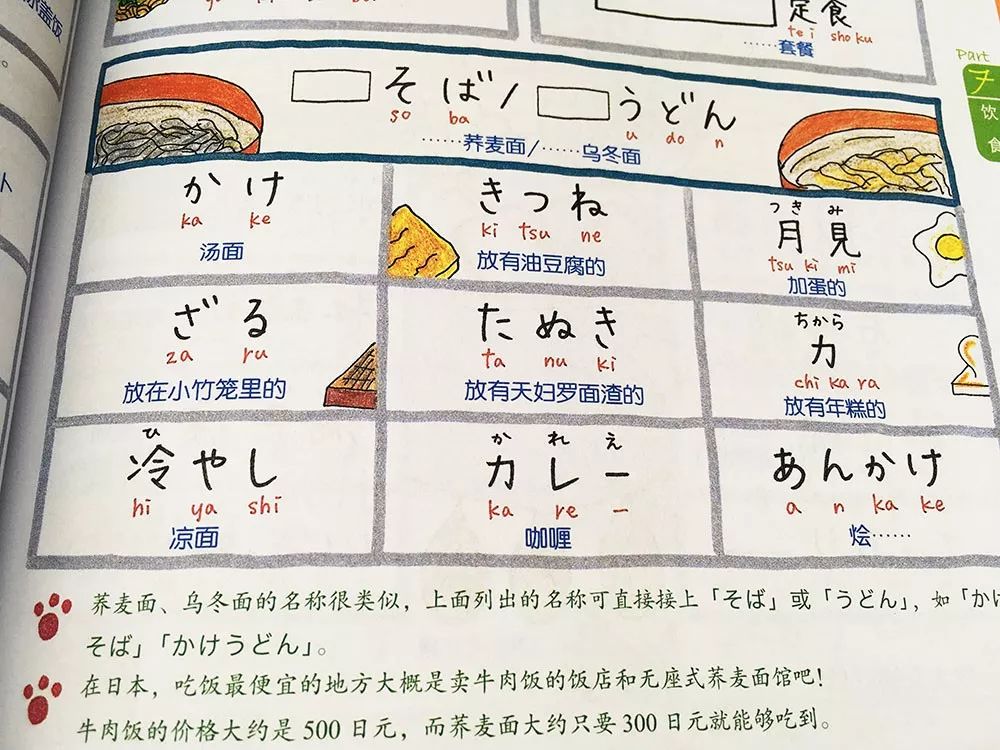 冰盖饭
定食
te i sho ku
……套餐
Part
7
饮
食
そば/ うどん
so ba
u do n
……荞麦面/……乌冬面
かけ
ka ke
汤面
きつね
ki tsu ne
放有油豆腐的
つき み
月見
tsu ki mi
加蛋的
ざる
za ru
放在小竹笼里的
たぬき
ta nu ki
放有天妇罗面渣的
ちから
力
chi ka ra
放有年糕的
ひ
冷やし
hi ya shi
凉面
か れ え
カレー
ka re –
咖喱
あんかけ
a n ka ke
烩……
荞麦面、乌冬面的名称很类似，上面列出的名称可直接接上「そば」或「うどん」，如「かけ
そば」「かけうどん」。
在日本，吃饭最便宜的地方大概是卖牛肉饭的饭店和无座式荞麦面馆吧！
牛肉饭的价格大约是 500 日元，而荞麦面大约只要 300 日元就能够吃到。